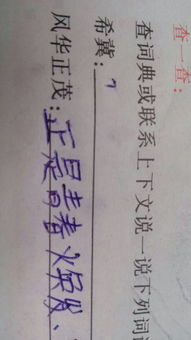 查一查：
查词典或联系上下文说一说下列词语
希冀：
风华正茂：正是青春火突发、